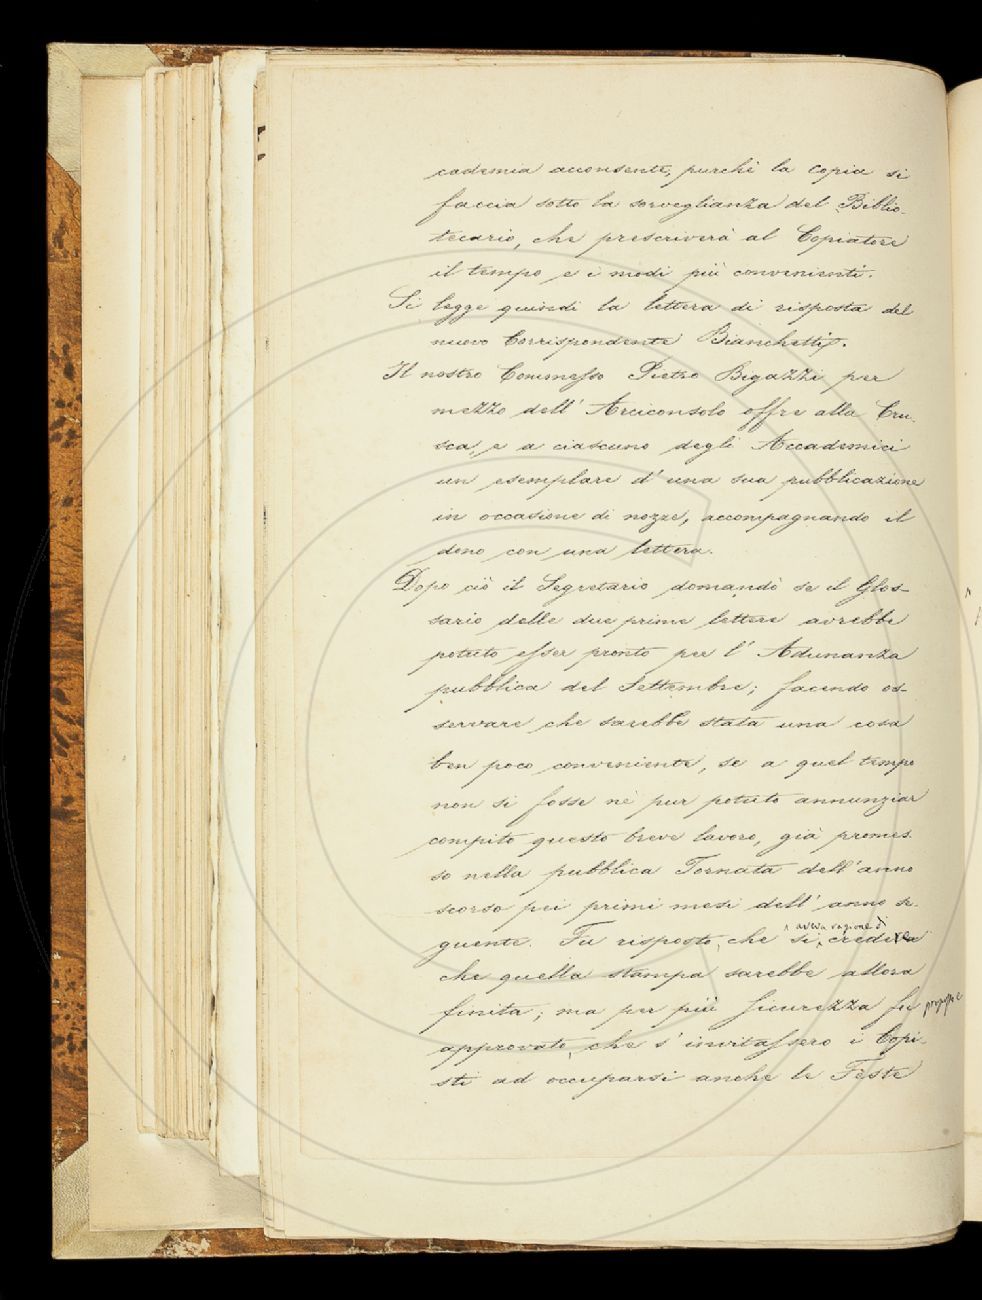 cademia acconsente, purchè la copia si
faccia sotto la sorveglianza del Biblio-
tecario, che prescriverà al Copiatore
il tempo e i modi più convenienti.
Si legge quindi la lettera di risposta del
nuovo Corrispondente Bianchetti.
Il nostro Commesso Pietro Bigazzi per
mezzo dell' Arciconsolo offre alla Cru-
sca, e a ciascuno degli Accademici
un esemplare d' una sua pubblicazione
in occasione di nozze, accompagnando il
dono con una lettera.
Dopo ciò il Segretario domandò se il Glos-
sario delle due prime lettere avrebbe
potuto esser pronto per l' Adunanza
pubblica del Settembre; facendo os-
servare che sarebbe stata una cosa
ben poco conveniente, se a quel tempo
non si fosse nè pur potuto annunziar
compito questo breve lavoro, già promes
so nella pubblica Tornata dell' anno
scorso pei primi mesi dell' anno se-
guente. Fu risposto, che si aveva ragione di credere
che quella stampa sarebbe allora
finita; ma per più sicurezza fu
approvato, che s' invitassero i Copi-
sti ad occuparsi anche le Feste